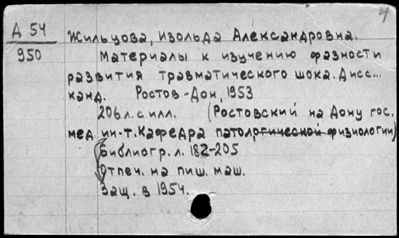 4
Д 54
950
Жильцова, Изольда Александровна.
Материалы к изучению фазности
развития травматического шока. Дисс...
канд. Ростов-Дон, 1953
206л. с илл. (Ростовский на Дону гос.
мед. ин-т. Кафедра патологической физиологии)
Библиогр. л. 182-205
Отпеч. на пиш. маш.
Защ. в 1954.